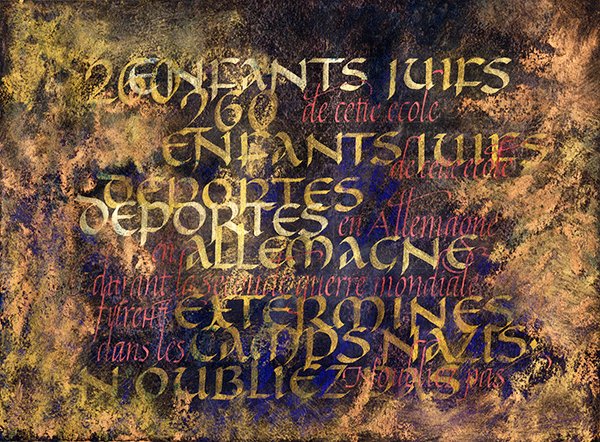 260 ENFANTS JUIFS
260 de cette ecole
ENFANTS JUIFS de cette ecole
DEPORTES
DEPORTES en Allemagne
en ALLEMAGNE
durant la seconde guerre mondiale
furent EXTERMINES
dans les CAMPS NAZIS.
N OUBLIEZ PAS N'oubliez pas